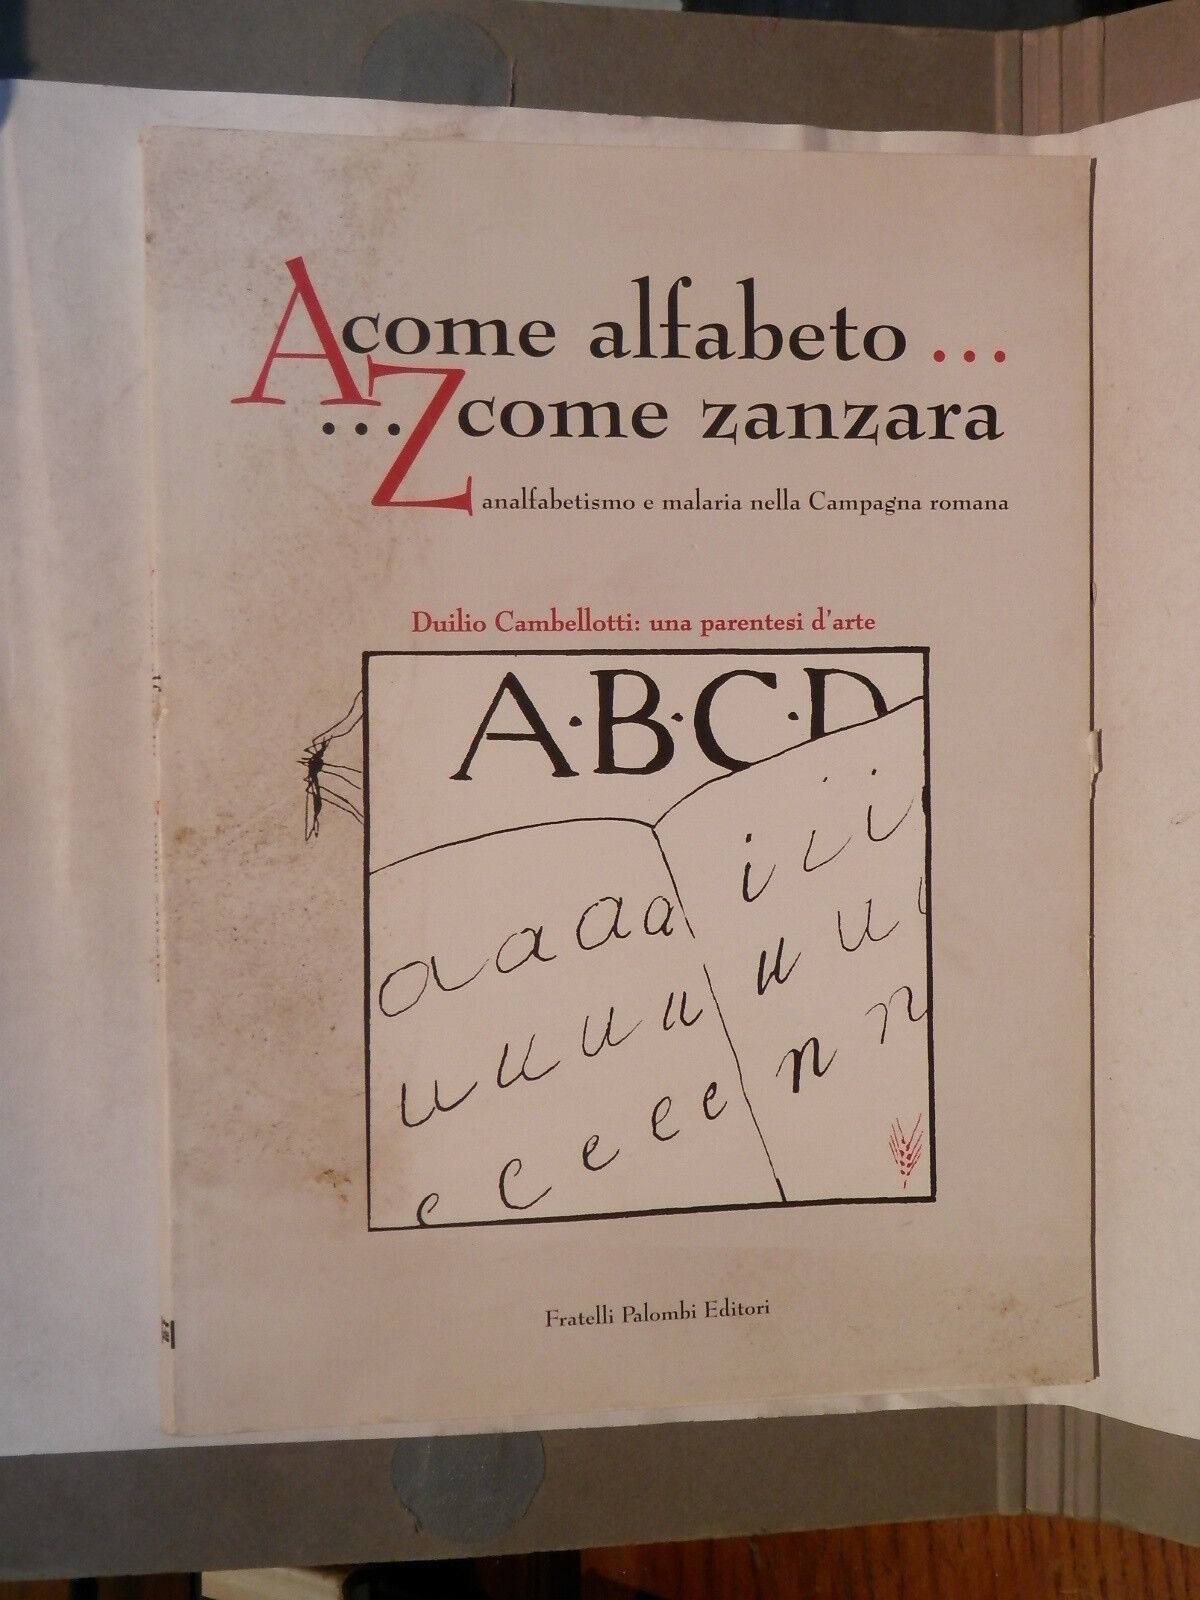 A come alfabeto ...
... Z come zanzara
analfabetismo e malaria nella Campagna romana
Duilio Cambellotti: una parentesi d'arte
A·B·C·D
a a a a i i i
u u u u u u
e e e e e n n
Fratelli Palombi Editori